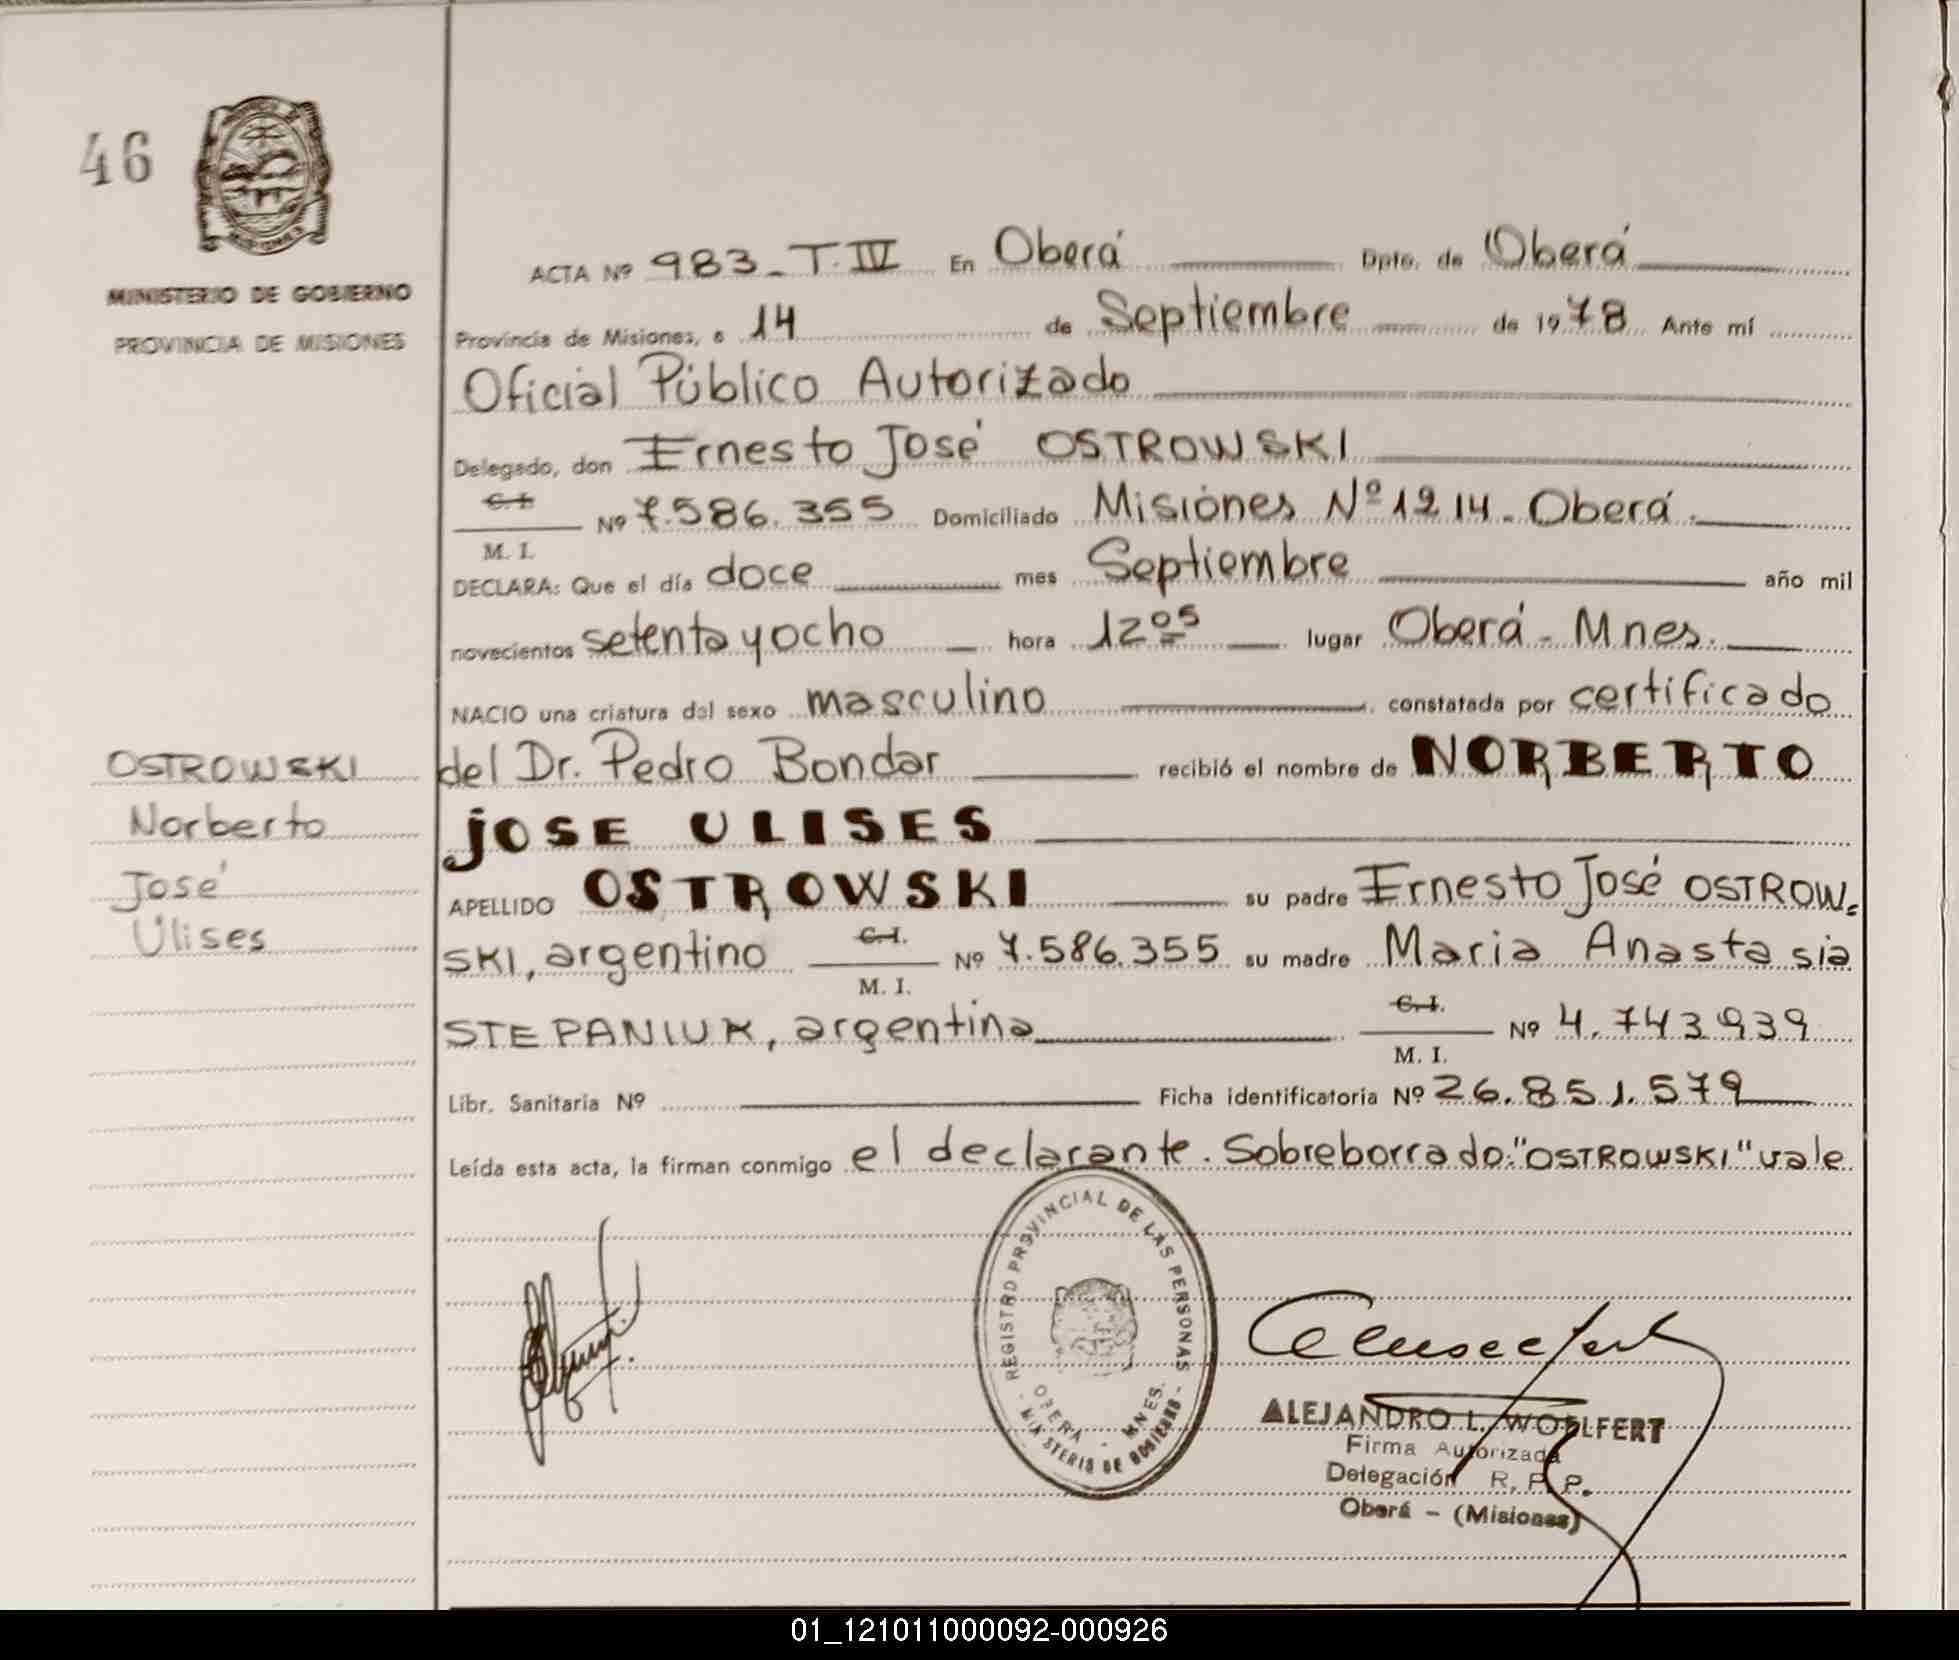 46
MINISTERIO DE GOBIERNO
PROVINCIA DE MISIONES
ACTA Nº 983_T.IV En Oberá Dpto. de Oberá
Provincia de Misiones, a 14 de Septiembre de 1978 Ante mí
Oficial Público Autorizado
Delegado, don Ernesto José OSTROWSKI
C.I.
M. I.
Nº 7.586.355 Domiciliado Misiones Nº 1214. Oberá.
DECLARA: Que el día doce mes Septiembre año mil
novecientos setenta y ocho hora 12 05 lugar Oberá - Mnes.
NACIO una criatura del sexo masculino constatada por certificado
del Dr. Pedro Bondar recibió el nombre de NORBERTO
JOSE ULISES
APELLIDO OSTROWSKI su padre Ernesto José OSTROW=
SKI, argentino C.I. M. I. Nº 7.586.355 su madre Maria Anastasia
STEPANIUK, argentina C.I. M. I. Nº 4.743.939
Libr. Sanitaria Nº Ficha identificatoria Nº 26.851.579
Leída esta acta, la firman conmigo el declarante. Sobreborrado: "OSTROWSKI" vale
OSTROWSKI
Norberto
José
Ulises
REGISTRO PROVINCIAL DE LAS PERSONAS
OBERA - MNES.
MINISTERIO DE GOBIERNO
ALEJANDRO L. WOELFERT
Firma Autorizada
Delegación R. P. P.
Oberá - (Misiones)
01_121011000092-000926